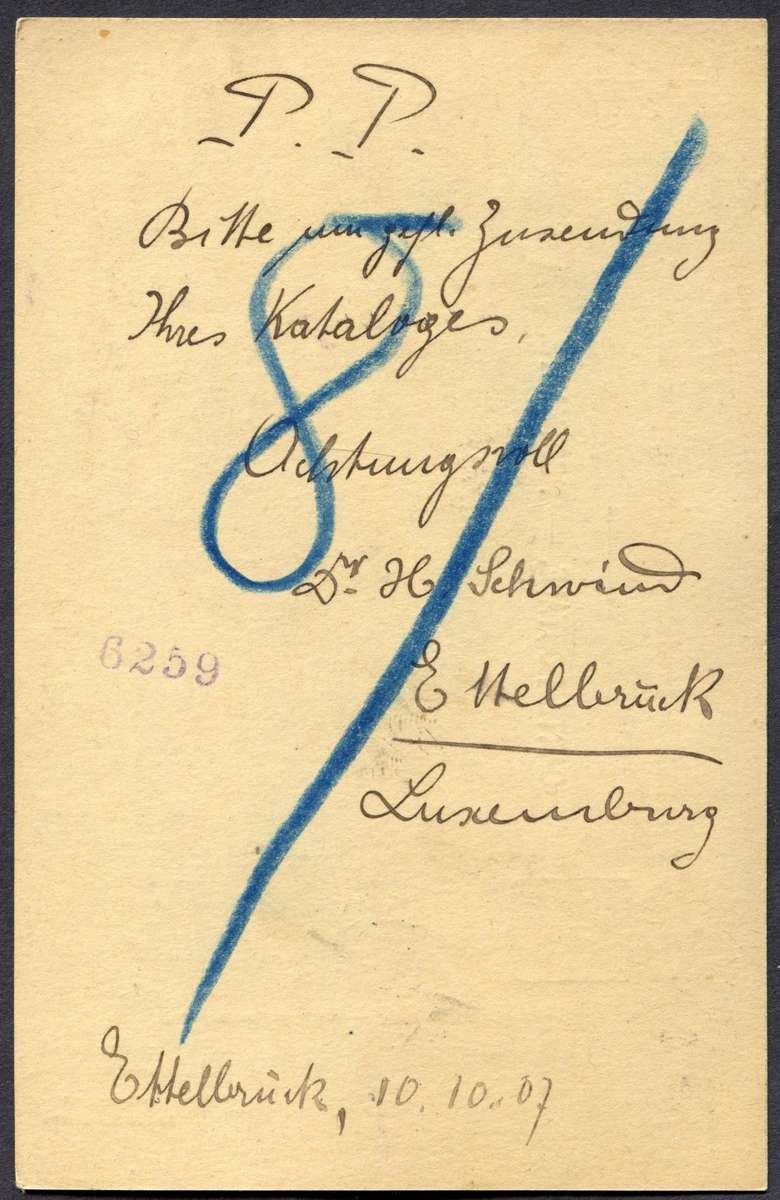 P. P.
Bitte um gefl. Zusendung
Ihres Kataloges,
Achtungsvoll
Dr. H. Schwind
Ettelbrück
Luxemburg
8/
6259
Ettelbrück, 10. 10. 07